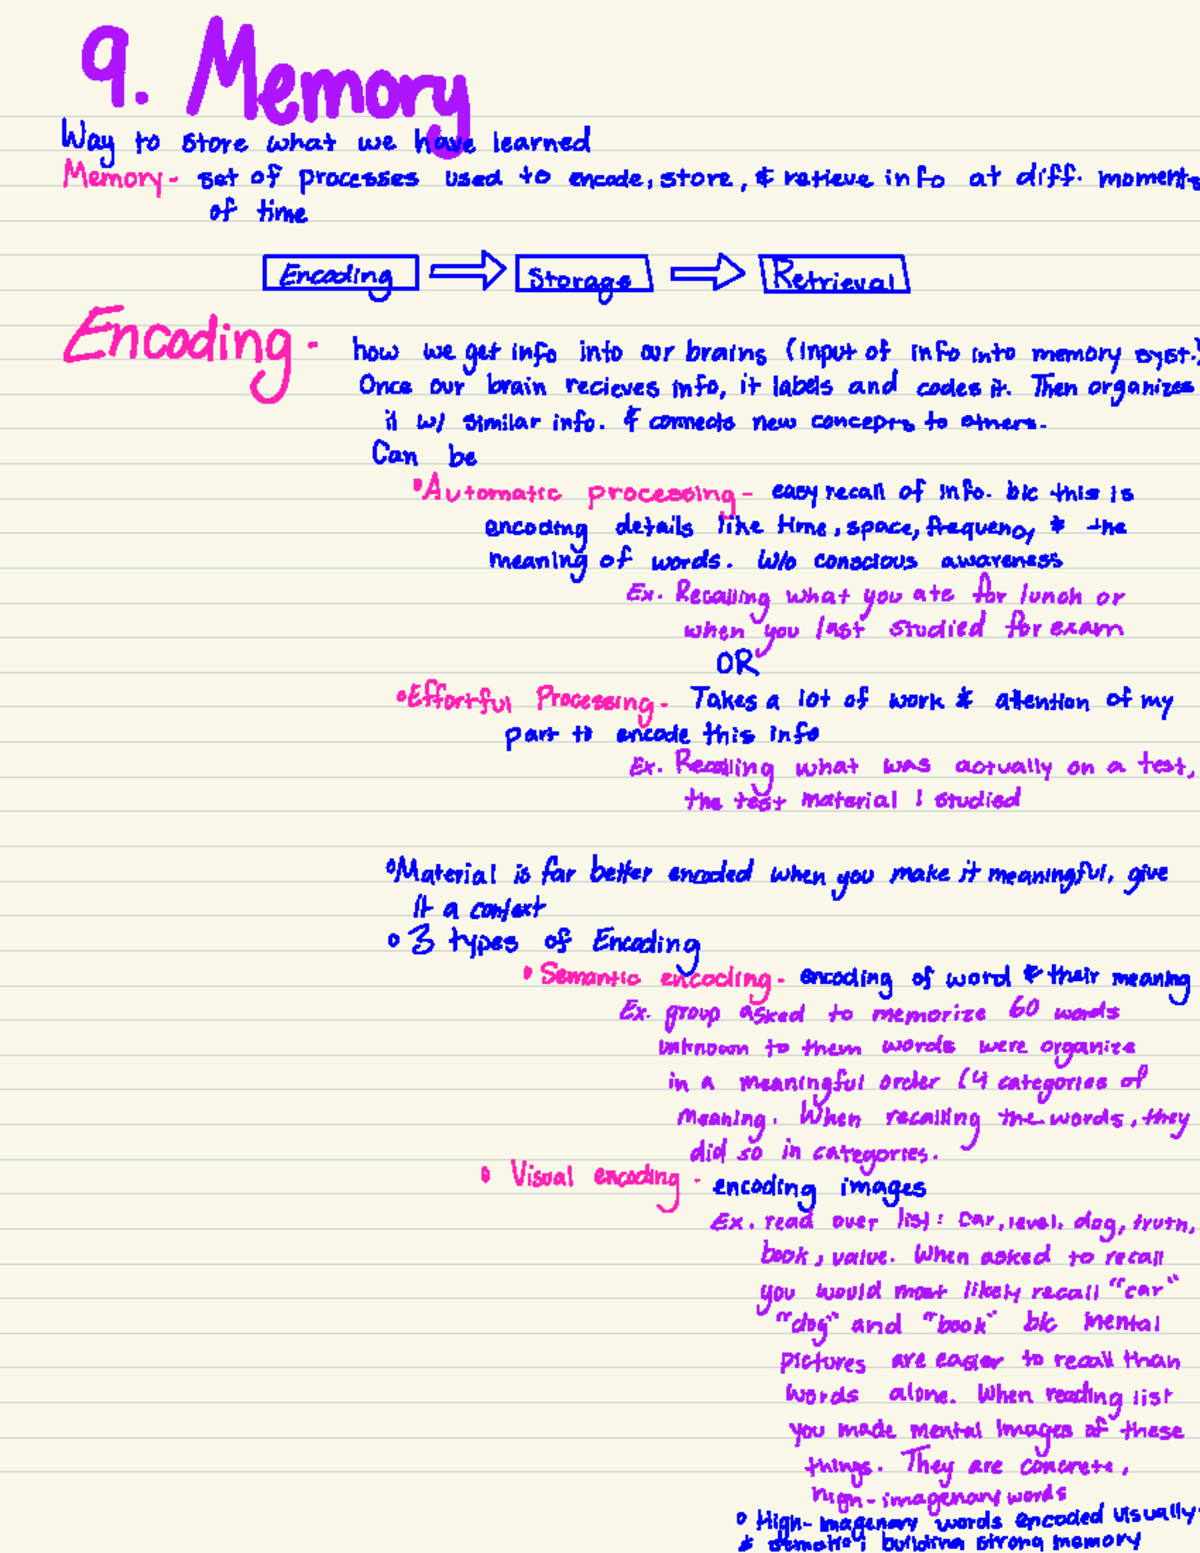 9. Memory
Way to store what we have learned
Memory - set of processes used to encode, store, & retieve info at diff. moments
of time
Encoding
Storage
Retrieval
Encoding - how we get info into our brains (input of info into memory syst.)
Once our brain recieves info, it labels and codes it. Then organizes
it w/ similar info. & connects new concepts to others.
Can be
•Automatic processing - easy recall of info. b/c this is
encoding details like time, space, frequency & the
meaning of words. W/o conscious awareness
Ex. Recalling what you ate for lunch or
when you last studied for exam
OR
•Effortful Processing - Takes a lot of work & attention of my
part to encode this info
Ex. Recalling what was actually on a test,
the test material I studied
•Material is far better encoded when you make it meaningful, give
it a context
• 3 types of Encoding
• Semantic encoding - encoding of word & their meaning
Ex. group asked to memorize 60 words
unknown to them words were organize
in a meaningful order (4 categories of
meaning. When recalling the words, they
did so in categories.
• Visual encoding - encoding images
Ex. read over list: car, level, dog, truth,
book, value. When asked to recall
you would most likely recall "car"
"dog" and "book" b/c mental
pictures are easier to recall than
words alone. When reading list
you made mental images of these
things. They are concrete,
high-imagenary words
• High-imagenary words encoded visually
& building strong memory